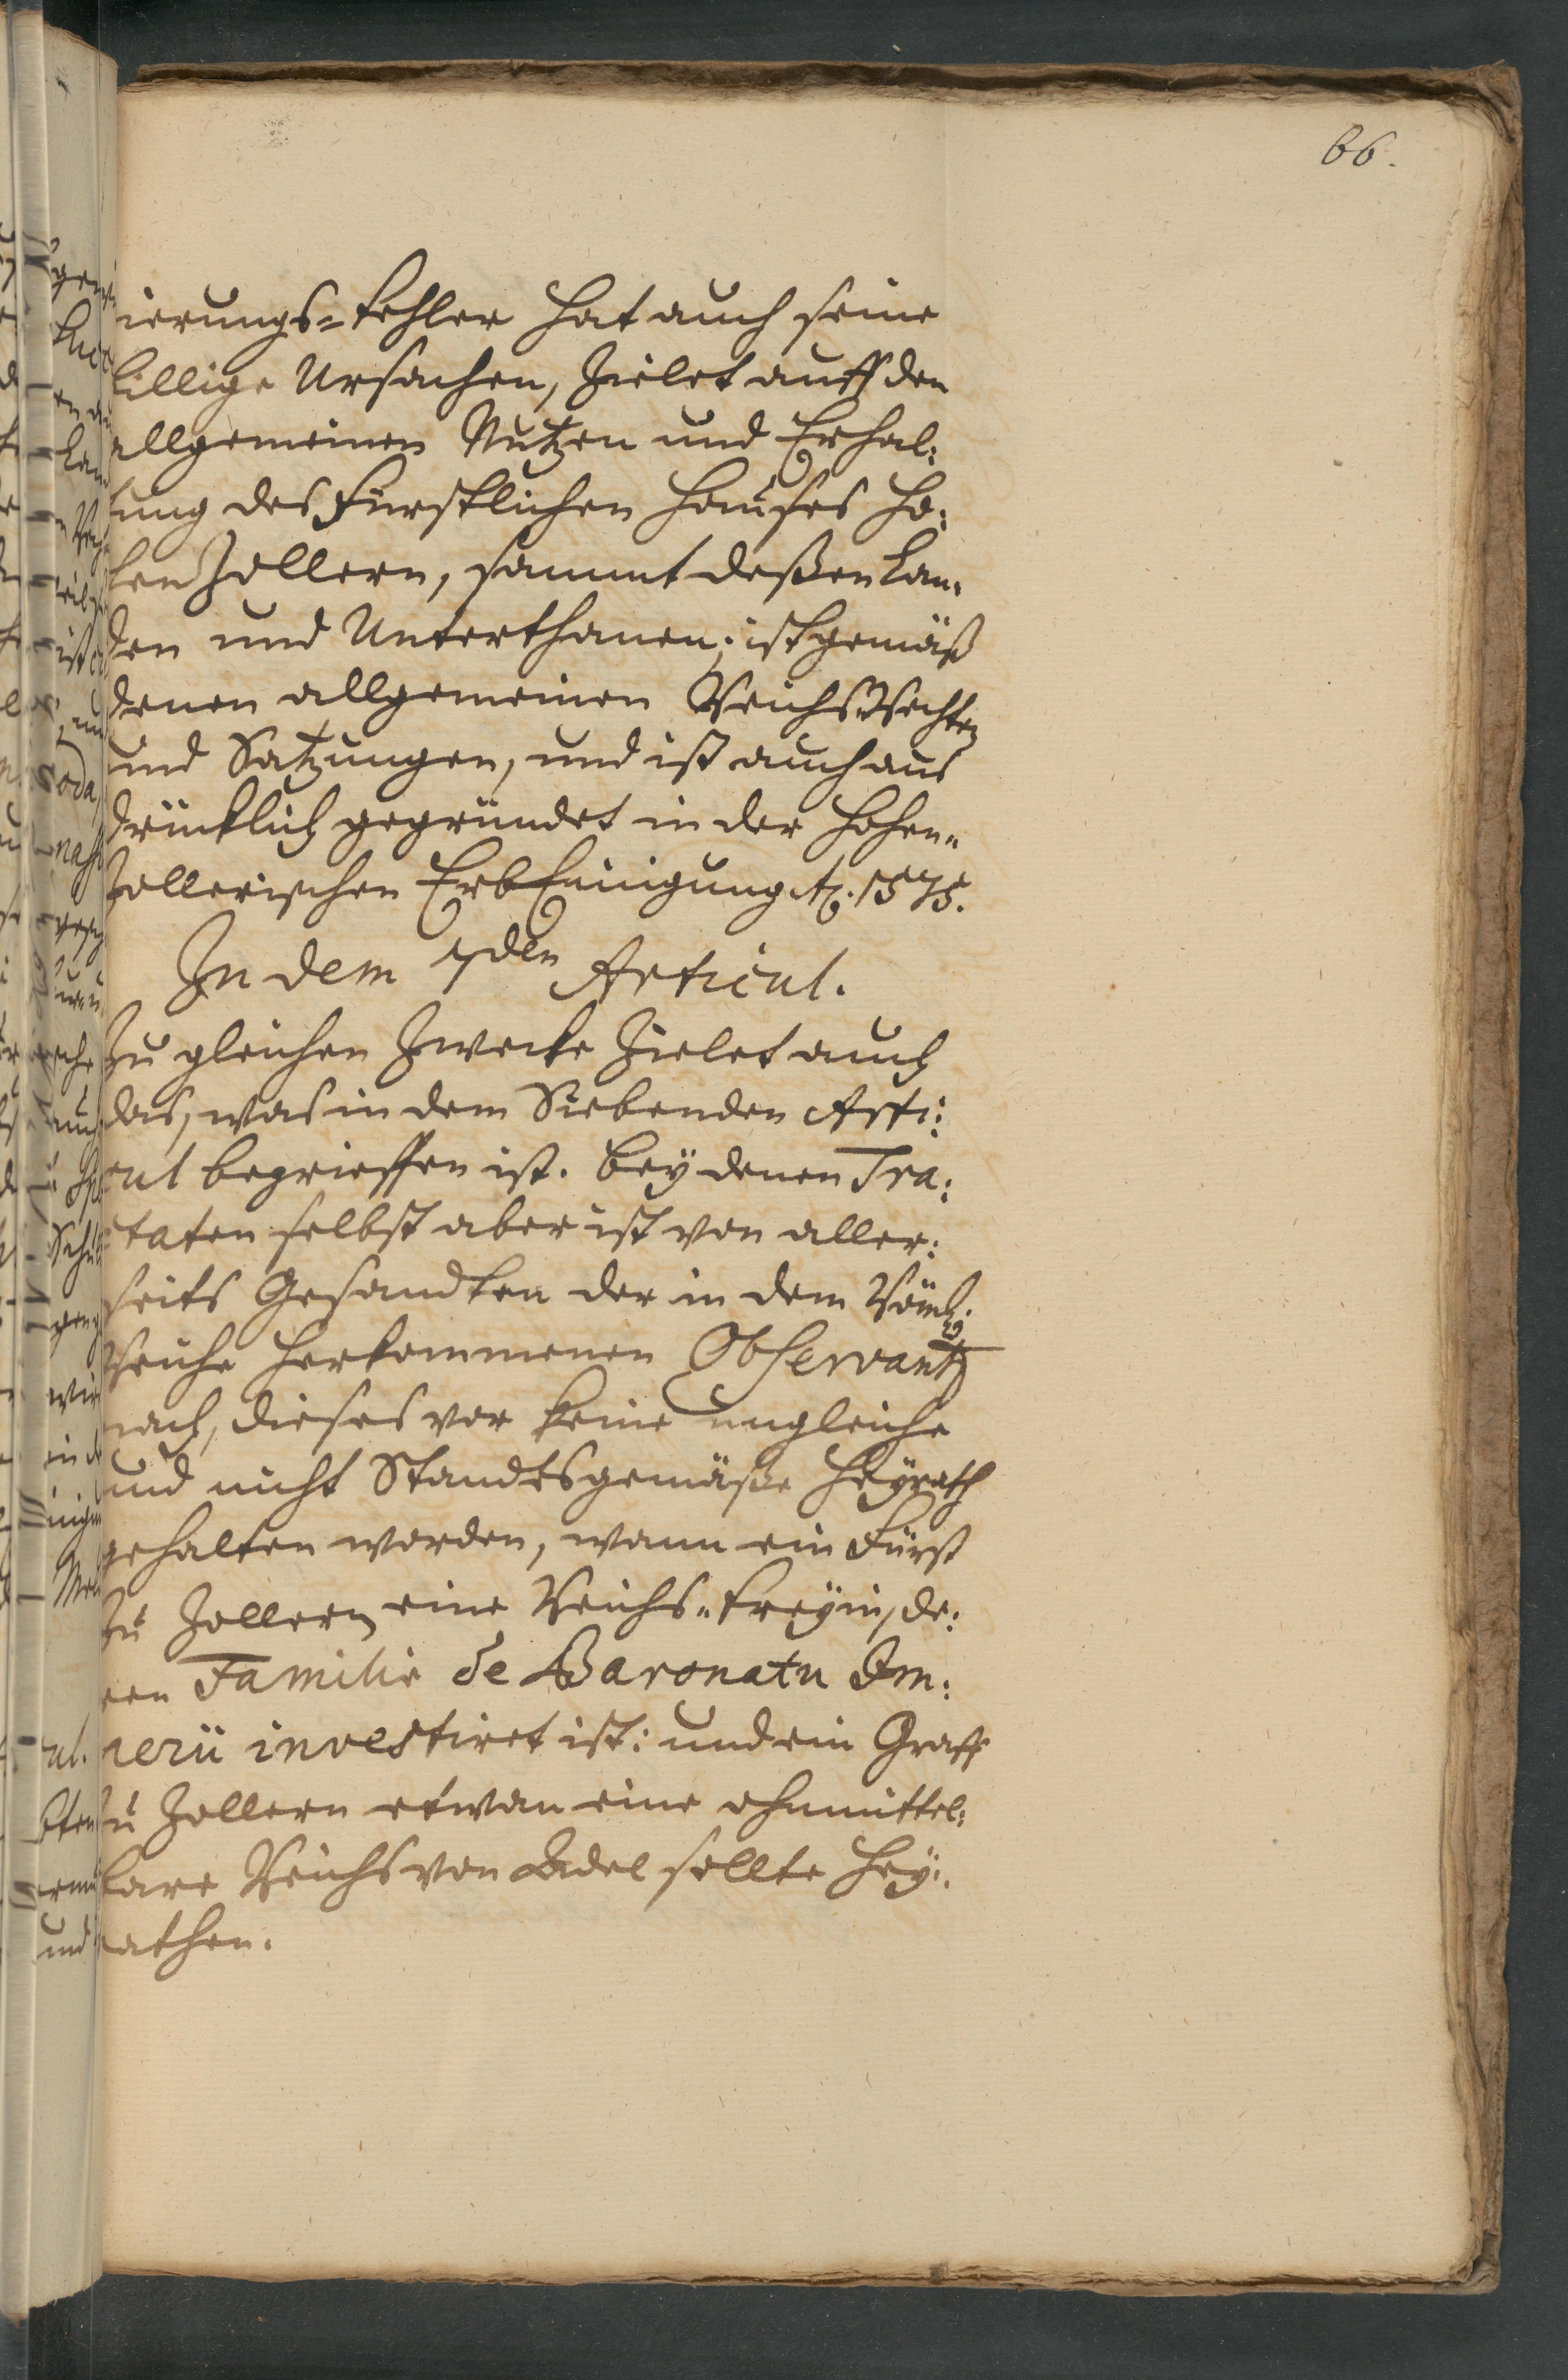 66.
ierungs-Fehler hat auch seine
billige Ursachen, zielet auff den
allgemeinen Nutzen und Erhal:
tung des Fürstlichen Hauses Ho:
hen Zollern, sammt deßen Lan:
den und Unterthanen; ist gemäß
denen allgemeinen Reichs Rechten
und Satzungen, und ist auch aus
drücklich gegründet in der Hohen-
zollerischen Erb Einigung Ao. 1575.
In dem 7den Articul.
Zu gleichen Zwecke zielet auch
das, was in dem Siebenden Arti:
cul begrieffen ist. bey denen Tra:
ctaten selbst aber ist von aller:
seits Gesandten der in dem Röml:
Reiche herkommenen Observantz
nach, dieses vor keine ungleiche
und nicht Standtsgemäße Heyrath
gehalten worden, wann ein Fürst
zu Zollern eine Reichs-Freyin, de:
ren Familie de Baronatu Im:
perii investiret ist: und ein Graff
zu Zollern etwan eine ohnmittel:
bare Reichs von Adel sollte Hey:
rathen.